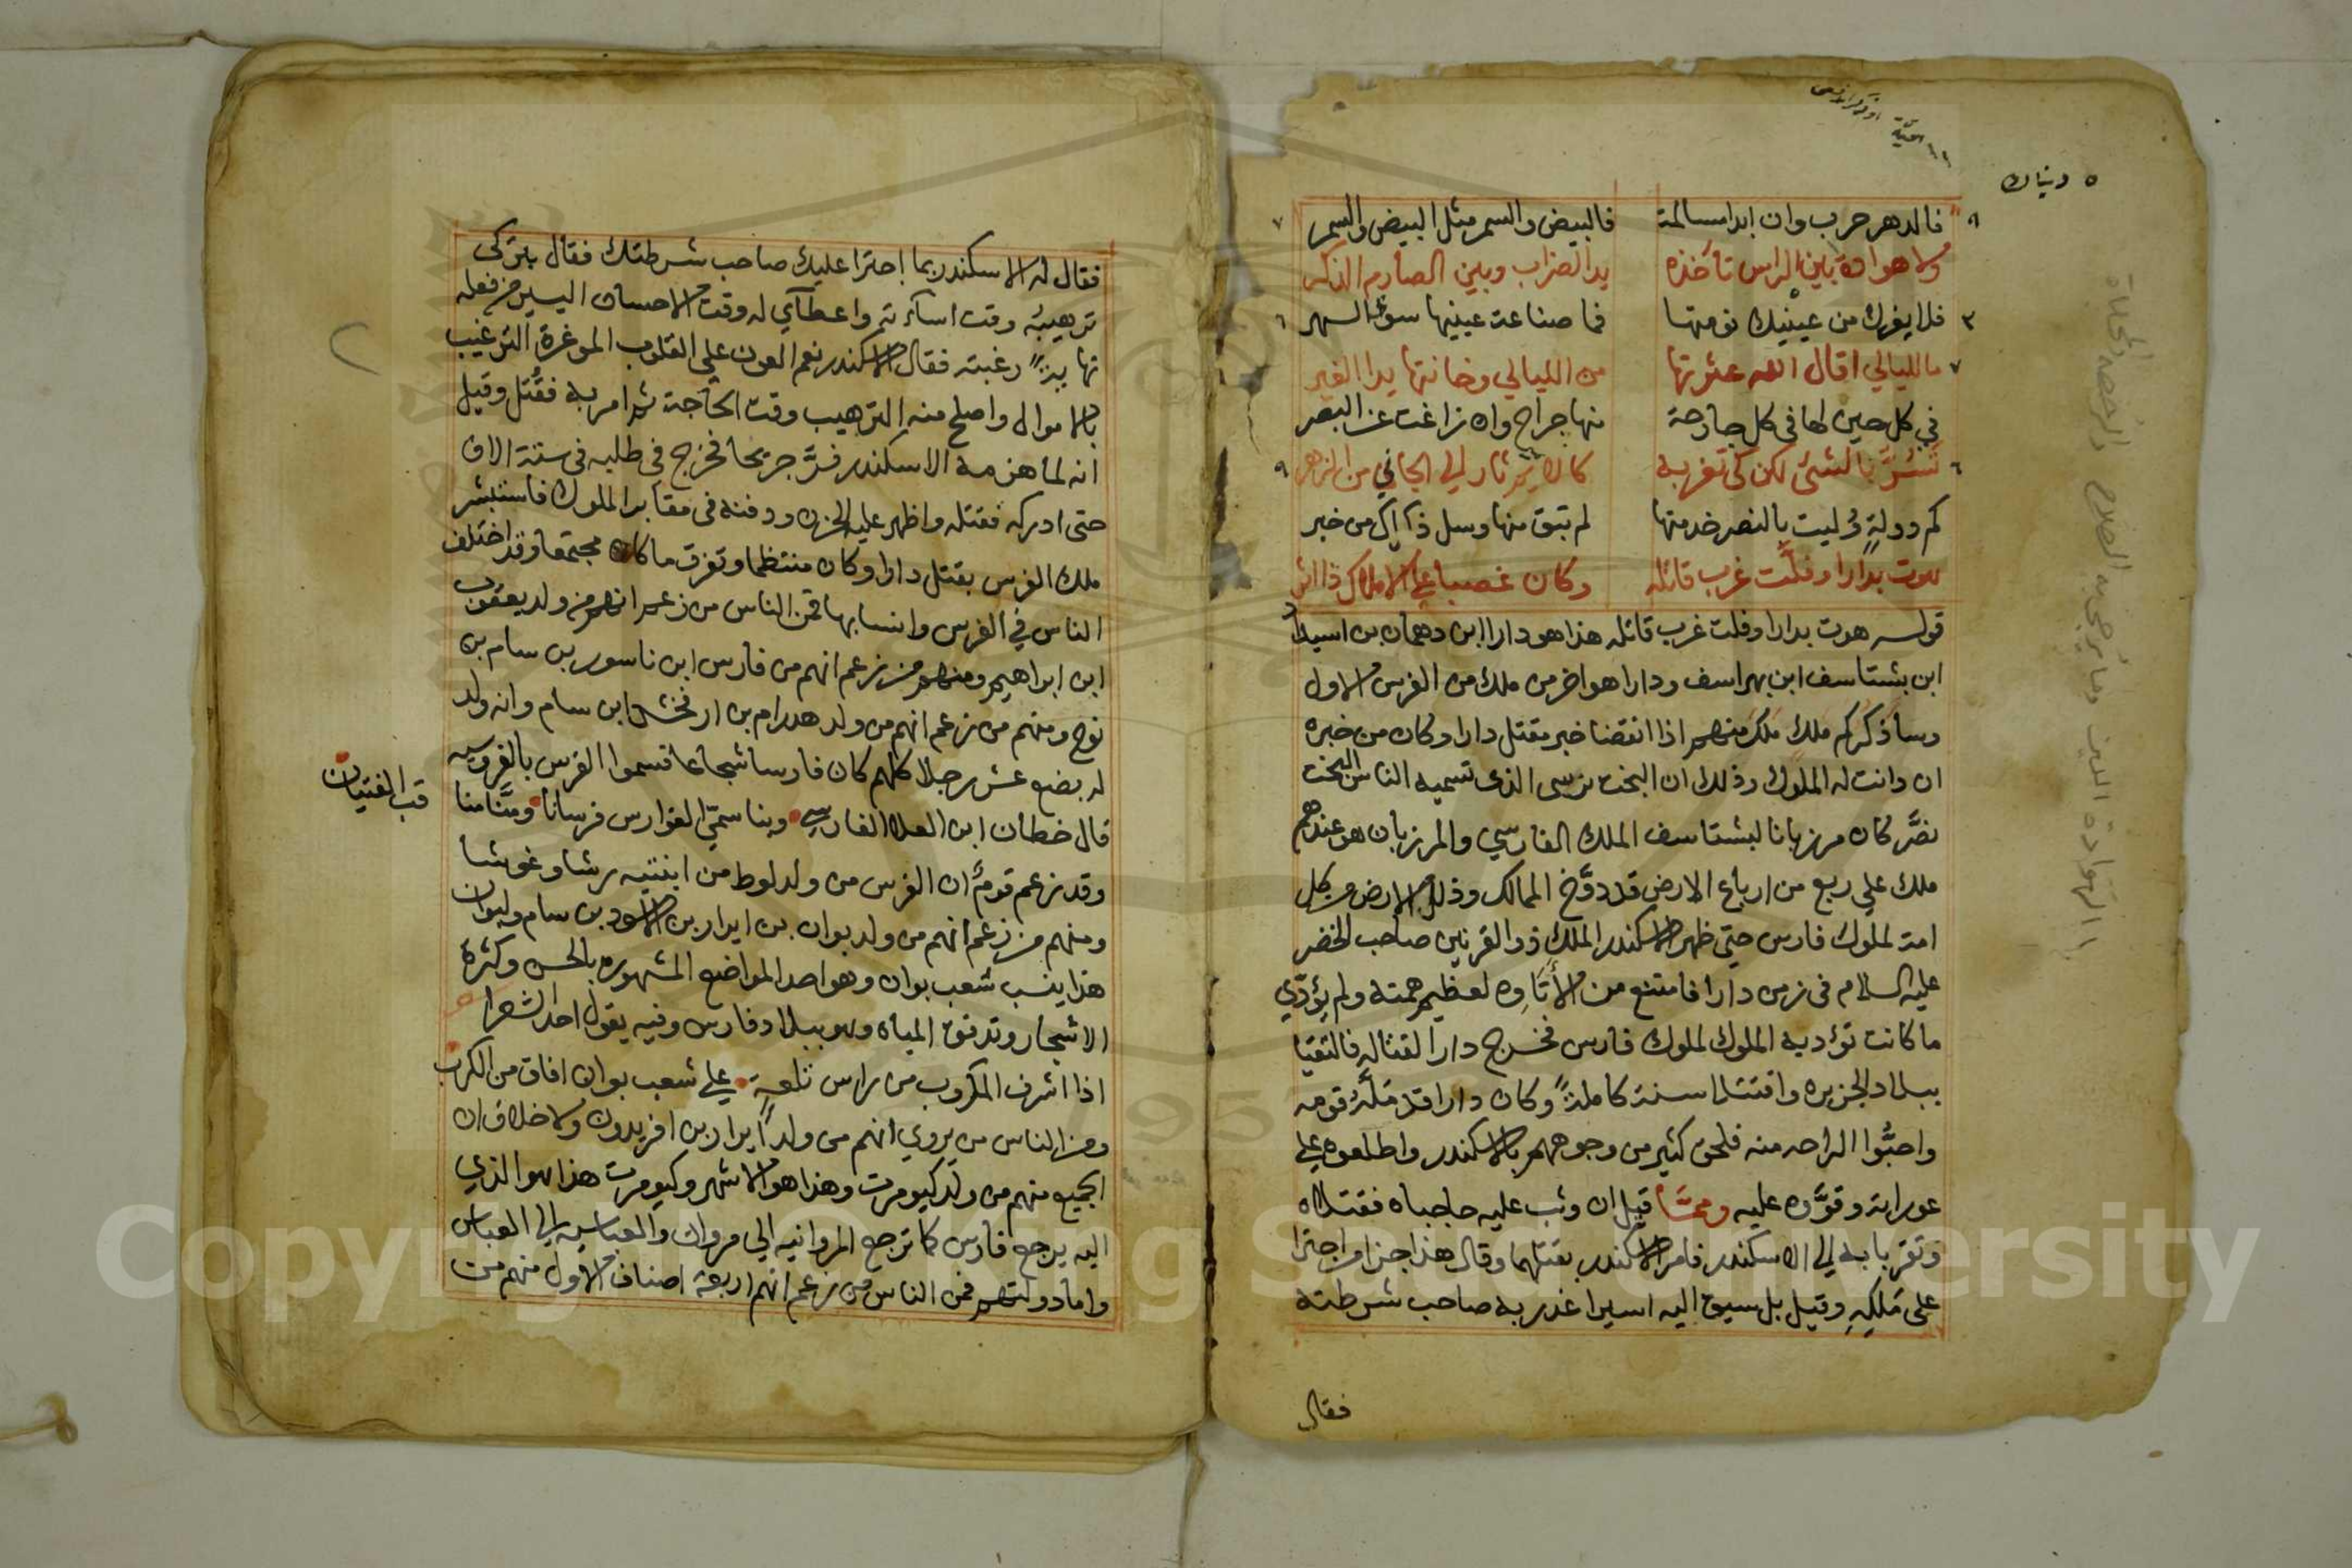 ٥ دنياك
فالدهر حرب وان ابدا مسالمة فالبيض والسمر مثل البيض والسمر
ولا هوادة بين الراس تاخذه يد الضراب وبين الصارم الذكر
فلا يغرك من عينيك نومتها فما صناعة عينيها سوى السهر
ما لليالي اقال الله عثرتها من الليالي وخانتها يد الغير
في كل حين لها في كل جارحة منها جراح وان زاغت عن البصر
تسر بالشئ لكن كي تغر به كالايم ثار الي الجاني من الزهر
كم دولة وليت بالنصر خدمتها لم تبق منها وسل ذاك من خبر
هوت بدارا وفلت غرب قاتله وكان غصبا علي الاملاك ذا اثر
قوله هوت بدارا وفلت غرب قاتله هذا هو دارا ابن دهمان بن اسيد
ابن بشتاسف ابن بهراسف ودارا هو اخر من ملك من الفرس الاول
وساذكركم ملك ملك منهم اذا انقضا خبر مقتل دارا وكان من خبره
ان دانت له الملوك وذلك ان البخت نرسى الذى تسميه الناس البخت
نصَّر كان مرزبانا لبشتاسف الملك الفارسي والمرزبان هو عندهم
ملك علي ربع من ارباع الارض قد دوَّخ الممالك وذلل الارض وكل
امة لملوك فارس حتى ظهر الاسكندر الملك ذو القرنين صاحب الخضر
عليه السلام فى زمن دارا فامتنع من الأتاوه لعظيم همته ولم يؤدّي
ما كانت تؤديه الملوك لملوك فارس فخرج دارا لقتاله فالتقيا
ببلاد الجزيره واقتتلا سنة كاملةً وكان دارا قد مَلَّهُ قومه
واحبُّوا الراحه منه فلحق كثير من وجوههم بالاسكندر واطلعوه علي
عوراته وقوَّوه عليه وممَّا قيل ان وثب عليه حاجباه فقتلاه
وتقربا به الي الاسكندر فامر الاسكندر بقتلهما وقال هذا جزا من اجترا
على مَلِكِهِ وقيل بل سيق اليه اسيرا غدر به صاحب شرطته
فقال
فقال له الاسكندر بما اجترا عليك صاحب شرطتك فقال بتركى
ترهيبه وقت اساءته واعطآي له وقت الاحسان اليسير من فعله
نهايةً رغبته فقال الاسكندر نعم العون على القلوب الموغرة الترغيب
بالاموال واصلح منه الترهيب وقت الحاجة ثم امر به فقُتل وقيل
انه لما هزمه الاسكندر فرَّ جريحا فخرج فى طلبه فى ستة الاف
حتى ادركه فقتله واظهر عليه الحزن ودفنه فى مقابر الملوك فاستبشر
ملك الفرس بقتل دارا وكان منتظما وتفرق ما كان مجتمعا وقد اختلف
الناس في الفرس وانسابها فمن الناس من زعم انهم من ولد يعقوب
ابن ابراهيم ومنهم من زعم انهم من فارس ابن ناسور بن سام بن
نوح ومنهم من زعم انهم من ولد هدرام بن ارفخشد ابن سام وانه ولد
له بضع عشر رجلا كلهم كان فارسا شجاعا فسموا الفرس بالفروسيه
قال خطان ابن المعلا الفارسي وبنا سمّي الفوارس فرسانا ومنَّا منا
قب الفتيان
وقد زعم قومٌ ان الفرس من ولد لوط من ابنتيه رشا وغوشا
ومنهم من زعم انهم من ولد بوان بن ايران بن الاسود بن سام ولبوان
هذا ينسب شعب بوان وهو احد المواضع المشهوره بالحسن وكثرة
الاشجار وتدفق المياه وهو ببلاد فارس وفيه يقول احد الشعرا
اذا اشرف المكروب من راس تلعةٍ علي شعب بوان افاق من الكرب
ومن الناس من يروي انهم من ولد ايران بن افريدون ولا خلاف ان
الجميع منهم من ولد كيومرت وهذا هو الاشهر وكيومرت هذا هو الذي
اليه يرجع فارس كما ترجع المروانيه الي مروان والعباسيه الي العباس
واما دولتهم فمن الناس من زعم انهم اربعة اصناف الاول منهم من
Copyright © King Saud University